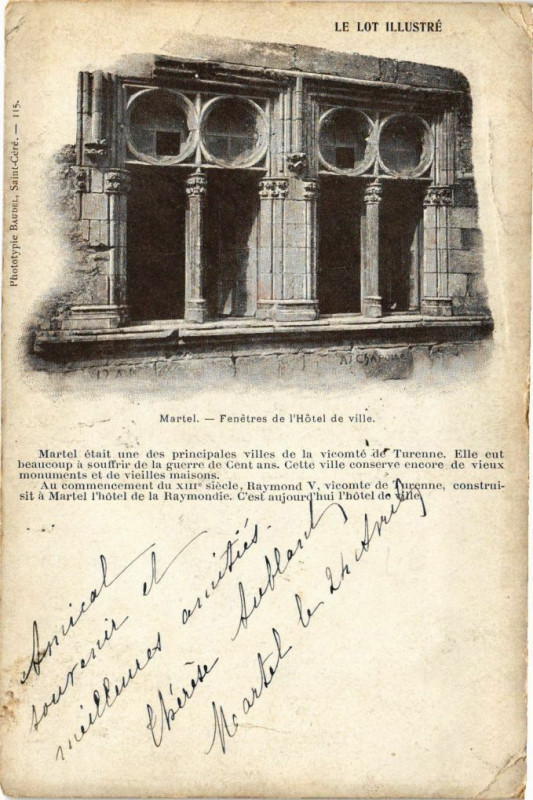 LE LOT ILLUSTRÉ
Phototypie BAUDEL, Saint-Céré. — 115.
Martel. — Fenêtres de l'Hôtel de ville.
Martel était une des principales villes de la vicomté de Turenne. Elle eut
beaucoup à souffrir de la guerre de Cent ans. Cette ville conserve encore de vieux
monuments et de vieilles maisons.
Au commencement du XIIIe siècle, Raymond V, vicomte de Turenne, construi-
sit à Martel l'hôtel de la Raymondie. C'est aujourd'hui l'hôtel de ville.
Amical
souvenir et
meilleures amitiés.
Thérèse
Martel le 24 Avril